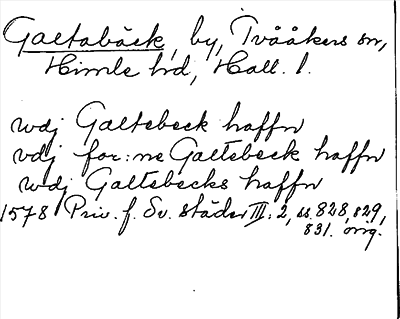 Galtabäck, by, Tvååkers sn,
Himle hd, Hall. l.
wdj Galtebeck haffn
vdj for:ne Galtebeck haffn
wdj Galtebecks haffn
1578 Priv. f. Sv. städer III: 2, ss. 828, 829,
831. orig.